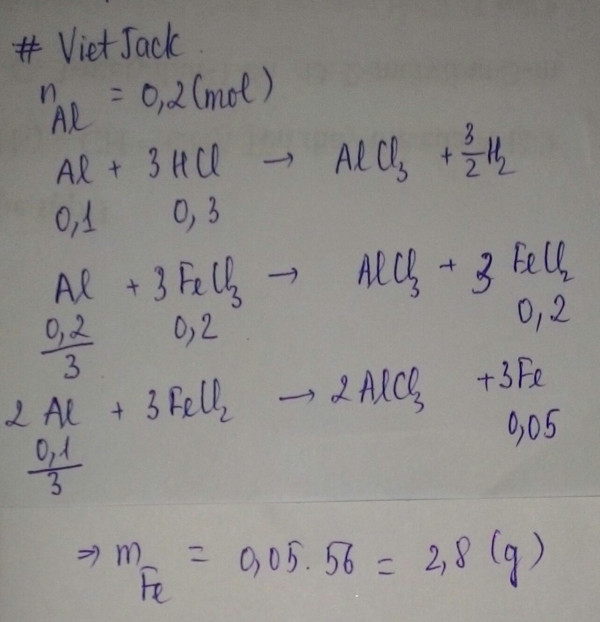 # VietJack
n Al = 0,2 (mol)
Al + 3HCl → AlCl3 + 3/2 H2
0,1 0,3
Al + 3FeCl3 → AlCl3 + 3 FeCl2
0,2/3 0,2 0,2
2 Al + 3FeCl2 → 2AlCl3 +3Fe
0,1/3 0,05
⇒ m Fe = 0,05. 56 = 2,8 (g)